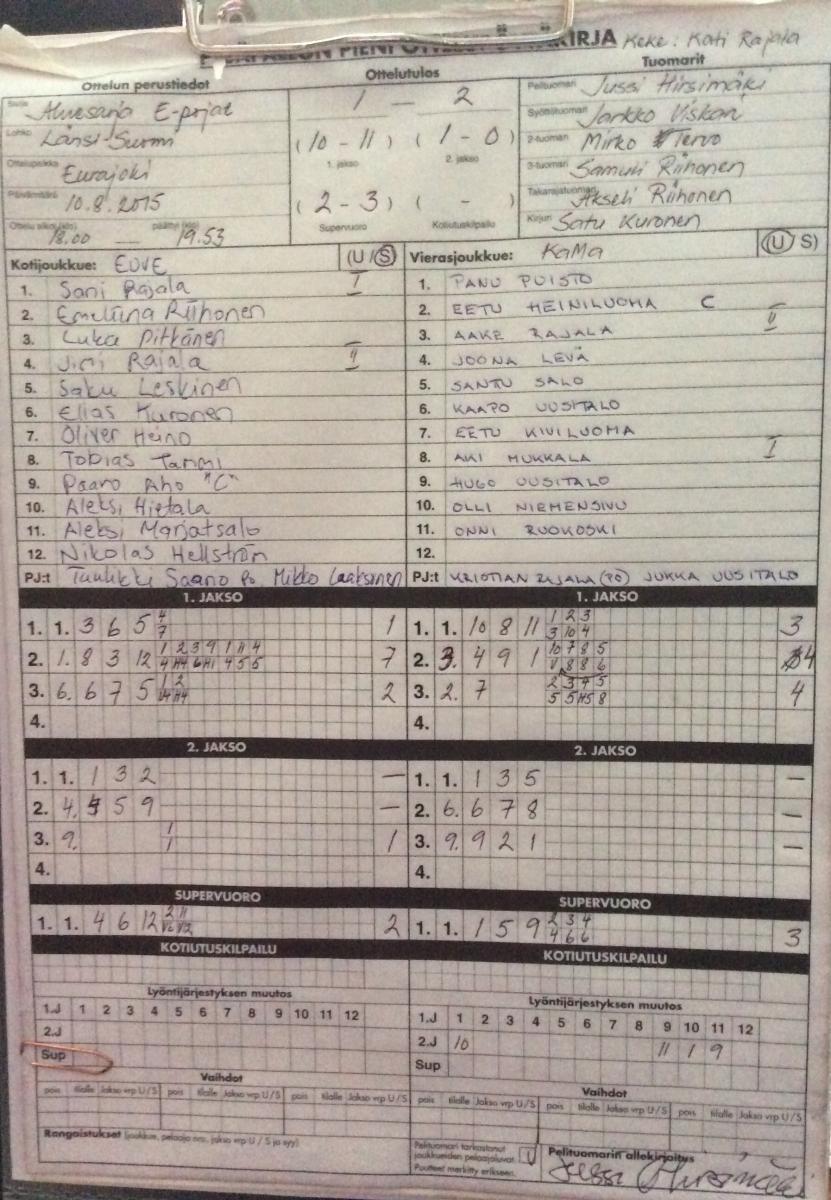 PESÄPALLON PIENI OTTELUPÖYTÄKIRJA Keke: Kati Rajala
Ottelun perustiedot Ottelutulos Tuomarit
Sarja Aluesarja E-pojat
Lohko Länsi-Suomi
Ottelupaikka Eurajoki
Päivämäärä 10.8.2015
Ottelu alkoi (klo) 18.00 — päättyi (klo) 19.53
1 — 2
(10 - 11) (1 - 0)
1. jakso 2. jakso
(2 - 3) ( - )
Supervuoro Kotiutuskilpailu
Pelituomari Jussi Hirsimäki
Syöttötuomari Jarkko Viskari
2-tuomari Mirko Tervo
3-tuomari Samuli Riihonen
Takarajatuomari Akseli Riihonen
Kirjuri Satu Kuronen
Kotijoukkue: EUVE (U/S)
1. Sani Rajala I
2. Emeliina Riihonen
3. Luka Pitkänen
4. Jimi Rajala II
5. Saku Leskinen
6. Elias Kuronen
7. Oliver Heino
8. Tobias Tammi
9. Paavo Aho "C"
10. Aleksi Hietala
11. Aleksi Marjatsalo
12. Nikolas Hellström
PJ:t Tuulikki Saano Po, Mikko Laaksonen
Vierasjoukkue: KaMa (U/S)
1. PANU PUISTO
2. EETU HEINILUOMA C
3. AAKE RAJALA II
4. JOONA LEVÄ
5. SANTU SALO
6. KAAPO UUSITALO
7. EETU KIVILUOMA
8. AKI MUKKALA I
9. HUGO UUSITALO
10. OLLI NIEMENSIVU
11. ONNI RUOKOSKI
12.
PJ:t KRISTIAN RAJALA (PO) JUKKA UUSITALO
1. JAKSO
1. 1. 3 6 5 4/7 1
2. 1. 8 3 12 7
3. 6. 6 7 5 2
4.
2. JAKSO
1. 1. 1 3 2 —
2. 4. 5 9 —
3. 9. 1/1 1
4.
SUPERVUORO
1. 1. 4 6 12 2
KOTIUTUSKILPAILU
Lyöntijärjestyksen muutos
1.J 1 2 3 4 5 6 7 8 9 10 11 12
2.J
Sup
Vaihdot
pois tilalle Jakso vrp U/S pois tilalle Jakso vrp U/S pois tilalle Jakso vrp U/S
Rangaistukset (joukkue, pelaaja nro, jakso vrp U / S ja syy)
1. JAKSO
1. 1. 10 8 11 1 2 3 3
3 10 4
2. 3. 4 9 1 10 7 8 5 4
3. 2. 7 4
4.
2. JAKSO
1. 1. 1 3 5 —
2. 6. 6 7 8 —
3. 9. 9 2 1 —
4.
SUPERVUORO
1. 1. 1 5 9 2 3 4 3
4 6 6
KOTIUTUSKILPAILU
Lyöntijärjestyksen muutos
1.J 1 2 3 4 5 6 7 8 9 10 11 12
2.J 10 11 1 9
Sup
Vaihdot
pois tilalle Jakso vrp U/S pois tilalle Jakso vrp U/S pois tilalle Jakso vrp U/S
Pelituomari tarkastanut
joukkueiden pelaajaluvat
Puutteet merkitty erikseen.
Pelituomarin allekirjoitus
Jussi Hirsimäki